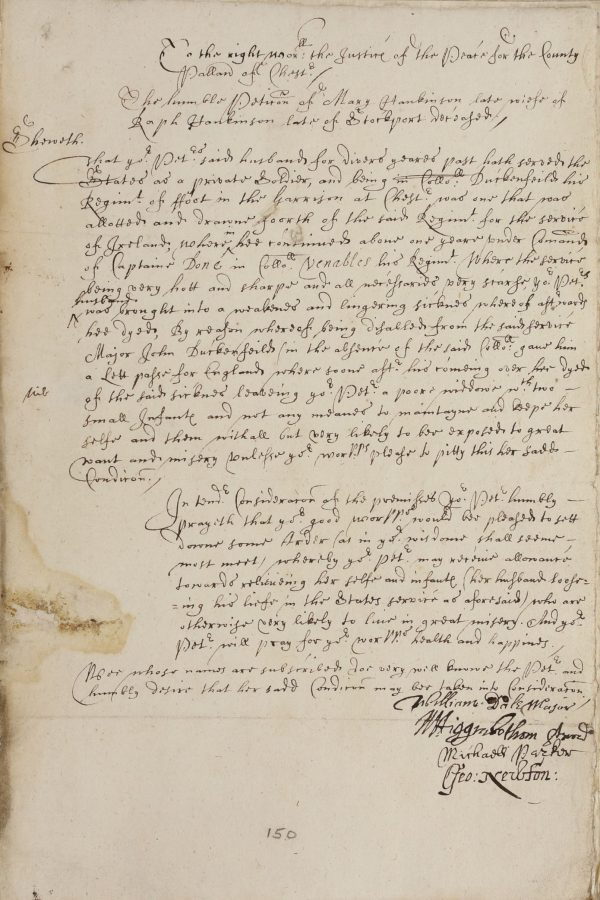 To the right wor:ll the Justices of the Peace for the County
Pallan of Chestr /
The humble Peticon of Mary Hankinson late wiefe of
Raph Hankinson late of Stockport deceased /
Sheweth.
That yor: Petrs: said husband for divers yeares past hath served the
States as a private Soldier, and being in Collo:ll Duckenfeild his
Regimt. of ffoot in the Garrison at Chestr. was one that was
allotted and drawne foorth of the said Regimt. for the service
of Ireland, where in hee continued above one yeare under Comand
of Captaine Done in Collo:ll Venables his Regimt. Where the service
being very hott and sharpe and all necessaries very scarse yor: Petrs:
husband
was brought into a weakenes and lingering sicknes whereof aftwards
hee dyed, By reason whereof being disabled from the said service
Major John Duckenfeild (in the absence of the said Collo:ll) gave him
a Lett passe for England where soone aftr: his coming over hee dyed
of the said sicknes leaveing yor: Petr: a poore widdowe wth: two
small Infants and not any meanes to maintayne and keepe her
selfe and them withall but very likely to bee exposed to great
want and misery unlesse yor: worpps please to pitty this her sadd
Condicon. /
In tendr: Consideracon of the premisses Yor: Petr: humbly
prayeth that yor: good worpps: would bee pleased to sett
downe some Order (as in yor: wisdome shall seeme
most meet) whereby yor: Petr: may receive allowance
towards releiveing her selfe and infants (her husband loose=
=ing his liefe in the States service as aforesaid) who are
otherwise very likely to live in great misery. And yor:
Petr: will pray for yor: worpps: health and happines. /
Wee whose names are subscribed doe very well knowe the Petr: and
humbly desire that her sadd Condicon may bee taken into Consideracon /
William: Dale Maior
Higginbotham
Michaell Parker
Geo: Newton:
150